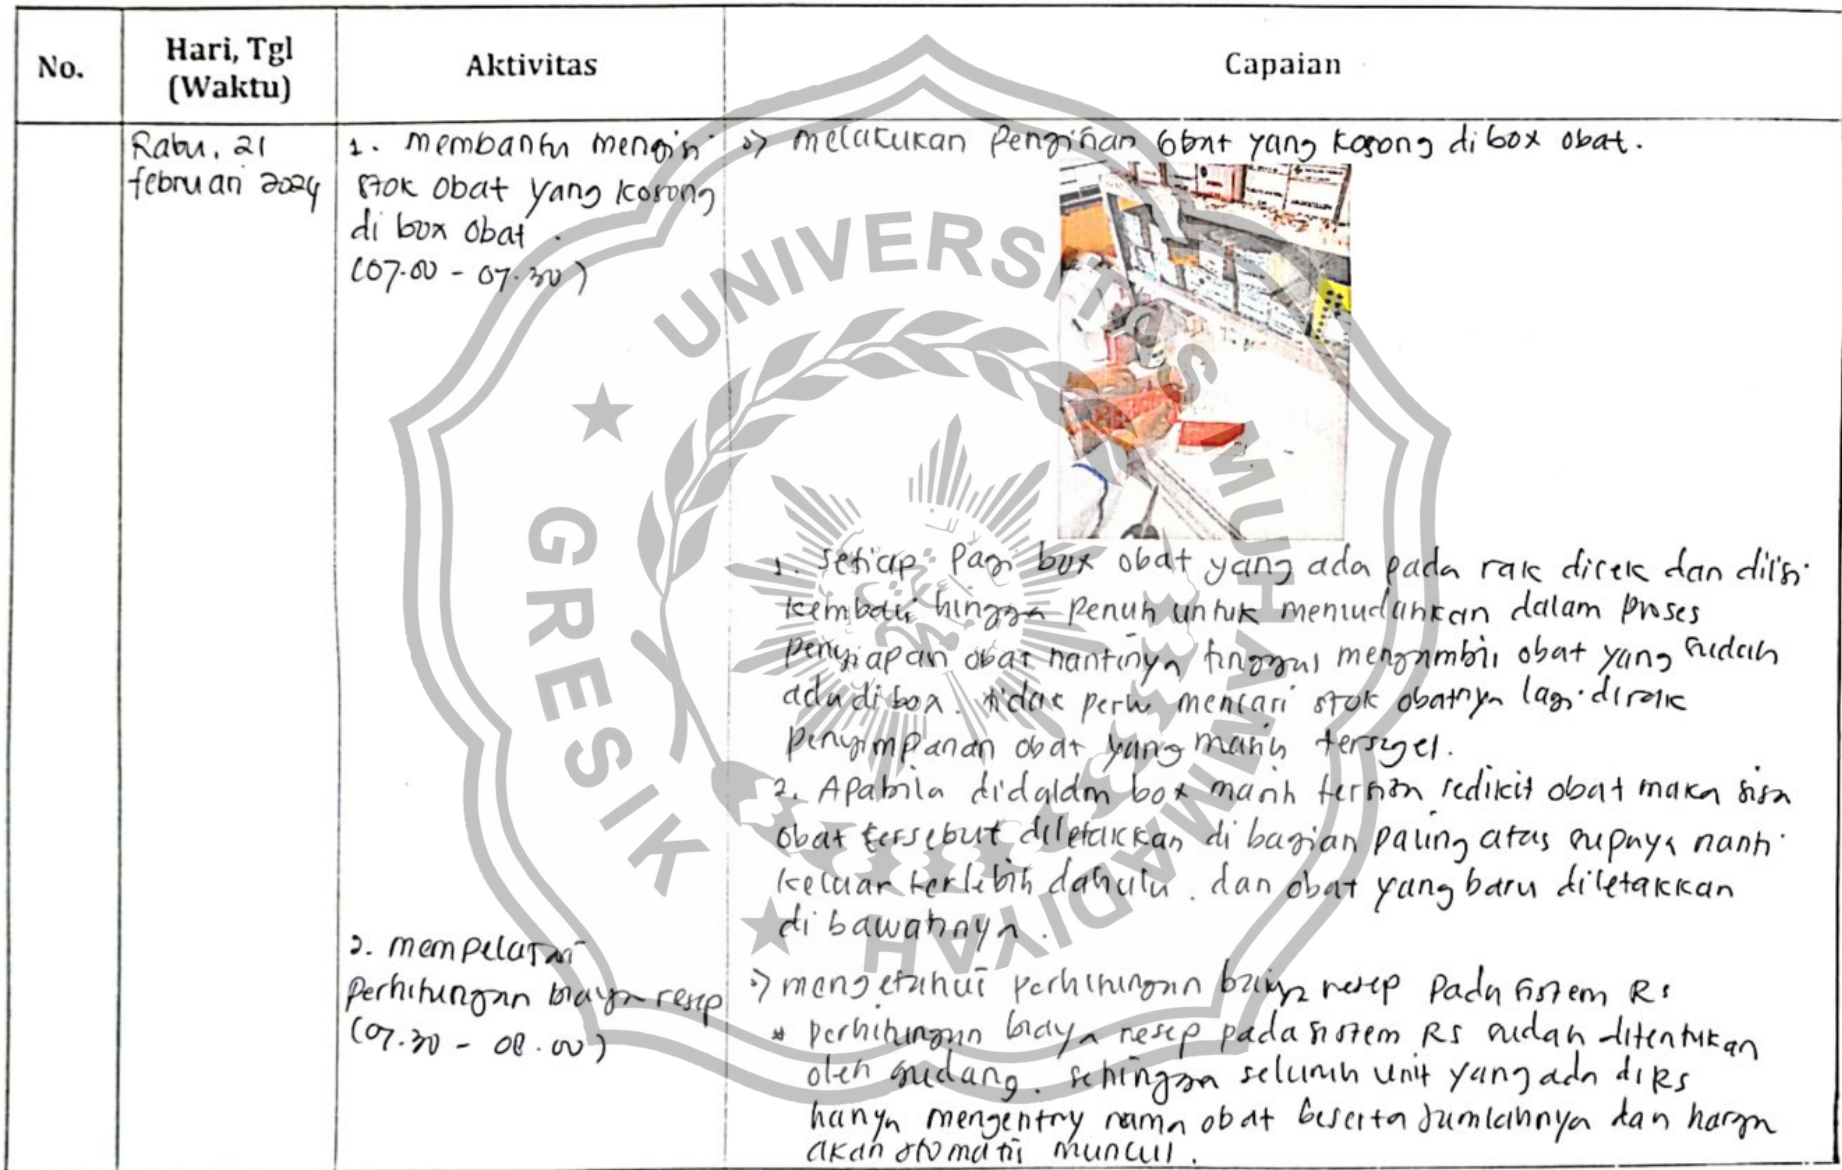 No.
Hari, Tgl
(Waktu)
Aktivitas
Capaian
Rabu, 21
februari 2024
1. membantu mengisi
stok obat yang kosong
di box obat.
(07.00 - 07.30)
=> melakukan Pengisian obat yang kosong di box obat.
1. setiap Pagi box obat yang ada pada rak dicek dan diisi
kembali hingga penuh untuk memudahkan dalam proses
penyiapan obat nantinya tinggal mengambil obat yang sudah
ada di box. tidak perlu mencari stok obatnya lagi dirak
penyimpanan obat yang masih tersegel.
2. Apabila didalam box masih tersisa sedikit obat maka sisa
obat tersebut diletakkan di bagian paling atas supaya nanti
keluar terlebih dahulu. dan obat yang baru diletakkan
di bawahnya.
2. mempelajari
Perhitungan biaya resep
(07.30 - 08.00)
=> mengetahui perhitungan biaya resep Pada sistem Rs
* perhitungan biaya resep pada sistem Rs sudah ditentukan
oleh gudang. sehingga seluruh unit yang ada di Rs
hanya mengentry nama obat beserta Jumlahnya dan harga
akan otomatis muncul.
UNIVERSITAS MUHAMMADIYAH
GRESIK